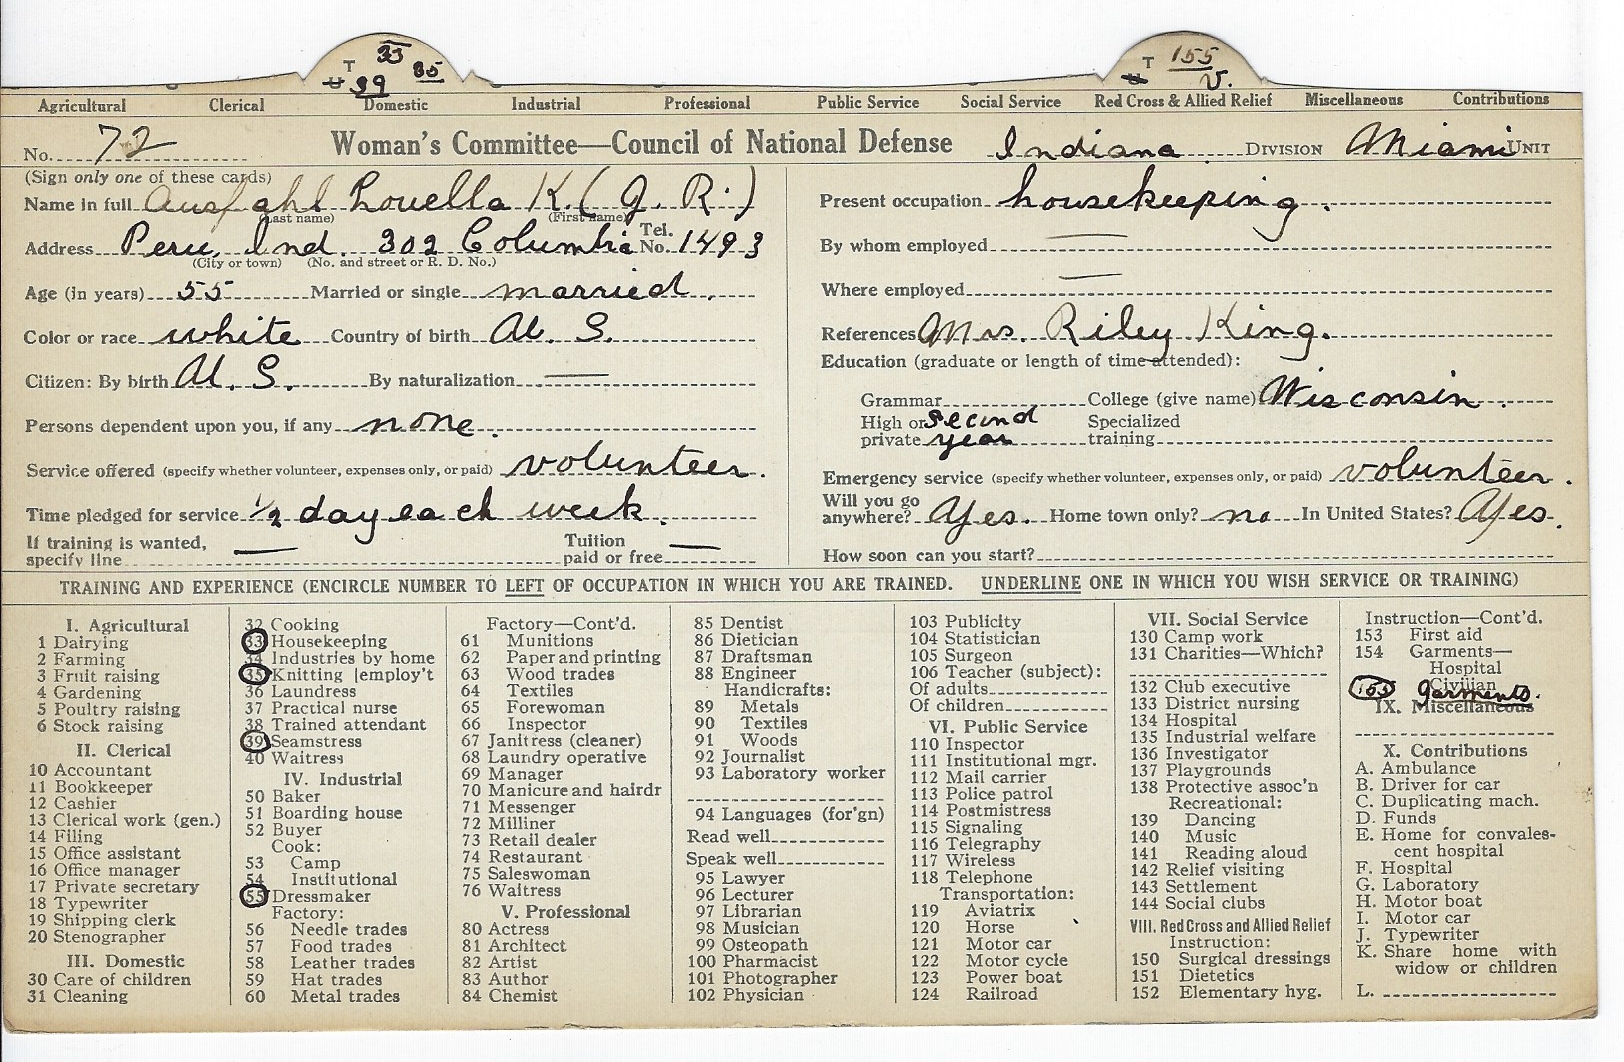 T 33 35
39
T 155
V.
Agricultural Clerical Domestic Industrial Professional Public Service Social Service Red Cross & Allied Relief Miscellaneous Contributions
No. 72 Woman's Committee—Council of National Defense Indiana DIVISION Miami UNIT
(Sign only one of these cards)
Name in full Louella K. (J. R.)
(Last name) (First name)
Address Peru, Ind. 302 Columbia Tel. No. 1493
(City or town) (No. and street or R. D. No.)
Age (in years) 55 Married or single married.
Color or race white Country of birth U. S.
Citizen: By birth U. S. By naturalization —
Persons dependent upon you, if any none.
Service offered (specify whether volunteer, expenses only, or paid) volunteer.
Time pledged for service 1/2 day each week.
If training is wanted, specify line — Tuition paid or free —
Present occupation housekeeping.
By whom employed —
Where employed —
References Mrs. Riley King.
Education (graduate or length of time attended):
Grammar College (give name) Wisconsin.
High or private second year Specialized training
Emergency service (specify whether volunteer, expenses only, or paid) volunteer.
Will you go anywhere? Yes. Home town only? no In United States? Yes.
How soon can you start?
TRAINING AND EXPERIENCE (ENCIRCLE NUMBER TO LEFT OF OCCUPATION IN WHICH YOU ARE TRAINED. UNDERLINE ONE IN WHICH YOU WISH SERVICE OR TRAINING)
I. Agricultural
1 Dairying
2 Farming
3 Fruit raising
4 Gardening
5 Poultry raising
6 Stock raising
II. Clerical
10 Accountant
11 Bookkeeper
12 Cashier
13 Clerical work (gen.)
14 Filing
15 Office assistant
16 Office manager
17 Private secretary
18 Typewriter
19 Shipping clerk
20 Stenographer
III. Domestic
30 Care of children
31 Cleaning
32 Cooking
33 Housekeeping
34 Industries by home
35 Knitting [employ't
36 Laundress
37 Practical nurse
38 Trained attendant
39 Seamstress
40 Waitress
IV. Industrial
50 Baker
51 Boarding house
52 Buyer
Cook:
53 Camp
54 Institutional
55 Dressmaker
Factory:
56 Needle trades
57 Food trades
58 Leather trades
59 Hat trades
60 Metal trades
Factory—Cont'd.
61 Munitions
62 Paper and printing
63 Wood trades
64 Textiles
65 Forewoman
66 Inspector
67 Janitress (cleaner)
68 Laundry operative
69 Manager
70 Manicure and hairdr
71 Messenger
72 Milliner
73 Retail dealer
74 Restaurant
75 Saleswoman
76 Waitress
V. Professional
80 Actress
81 Architect
82 Artist
83 Author
84 Chemist
85 Dentist
86 Dietician
87 Draftsman
88 Engineer
Handicrafts:
89 Metals
90 Textiles
91 Woods
92 Journalist
93 Laboratory worker
94 Languages (for'gn)
Read well
Speak well
95 Lawyer
96 Lecturer
97 Librarian
98 Musician
99 Osteopath
100 Pharmacist
101 Photographer
102 Physician
103 Publicity
104 Statistician
105 Surgeon
106 Teacher (subject):
Of adults
Of children
VI. Public Service
110 Inspector
111 Institutional mgr.
112 Mail carrier
113 Police patrol
114 Postmistress
115 Signaling
116 Telegraphy
117 Wireless
118 Telephone
Transportation:
119 Aviatrix
120 Horse
121 Motor car
122 Motor cycle
123 Power boat
124 Railroad
VII. Social Service
130 Camp work
131 Charities—Which?
132 Club executive
133 District nursing
134 Hospital
135 Industrial welfare
136 Investigator
137 Playgrounds
138 Protective assoc'n
Recreational:
139 Dancing
140 Music
141 Reading aloud
142 Relief visiting
143 Settlement
144 Social clubs
VIII. Red Cross and Allied Relief
Instruction:
150 Surgical dressings
151 Dietetics
152 Elementary hyg.
Instruction—Cont'd.
153 First aid
154 Garments—
Hospital
Civilian
155 garments.
IX. Miscellaneous
X. Contributions
A. Ambulance
B. Driver for car
C. Duplicating mach.
D. Funds
E. Home for convales-
cent hospital
F. Hospital
G. Laboratory
H. Motor boat
I. Motor car
J. Typewriter
K. Share home with
widow or children
L.